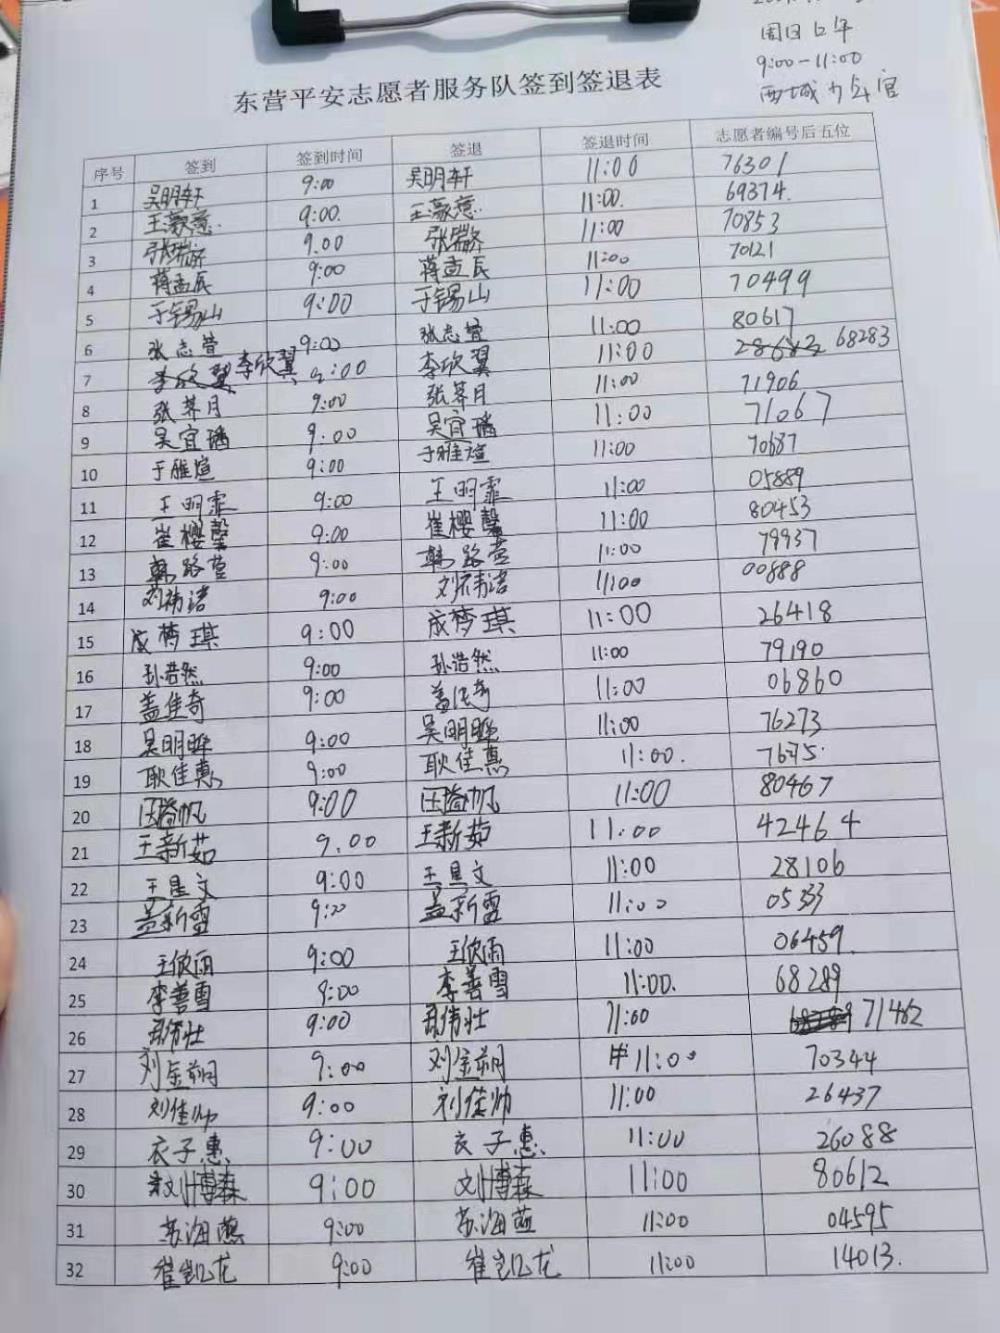 周日上午
9:00-11:00
西城少年宫
东营平安志愿者服务队签到签退表
序号 签到 签到时间 签退 签退时间 志愿者编号后五位
1 吴明轩 9:00 吴明轩 11:00 76301
2 王歆慈 9:00. 王歆慈. 11:00. 69374.
3 张瑞洛 9.00 张瑞洛 11:00 70853
4 蒋孟辰 9:00 蒋孟辰 11:00 70121
5 于锡山 9:00 于锡山 11:00 70499
6 张志萱 9:00 张志萱 11:00 80617
7 李欣翼 9:00 李欣翼 11:00 68283
8 张荞月 9:00 张荞月 11:00 71906
9 吴宜璠 9:00 吴宜璠 11:00 71067
10 于雅煊 9:00 于雅煊 11:00 70687
11 王明霏 9:00 王明霏 11:00 05889
12 崔樱馨 9:00 崔樱馨 11:00 80453
13 韩路萱 9:00 韩路萱 11:00 79937
14 刘祎诺 9:00 刘祎诺 11:00 00888
15 成梦琪 9:00 成梦琪 11:00 26418
16 孙浩然 9:00 孙浩然 11:00 79190
17 盖佳奇 9:00 盖佳奇 11:00 06860
18 吴明 9:00 吴明 11:00 76273
19 耿佳惠 9:00 耿佳惠 11:00. 7675.
20 9:00 11:00 80467
21 王新茹 9.00 王新茹 11:00 42464
22 王星文 9:00 王星文 11:00 28106
23 孟新雪 9:00 孟新雪 11:00 05333
24 王欣雨 9:00 王欣雨 11:00 06459.
25 李善雪 9:00 李善雪 11:00. 68289
26 9:00 11:00 71462
27 刘金朔 9:00 刘金朔 11:00 70344
28 刘佳帅 9:00 刘佳帅 11:00 26437
29 衣子惠 9:00 衣子惠 11:00 26088
30 刘博森 9:00 刘博森 11:00 80612
31 苏海 9:00 苏海 11:00 04595
32 崔凯龙 9:00 崔凯龙 11:00 14013.